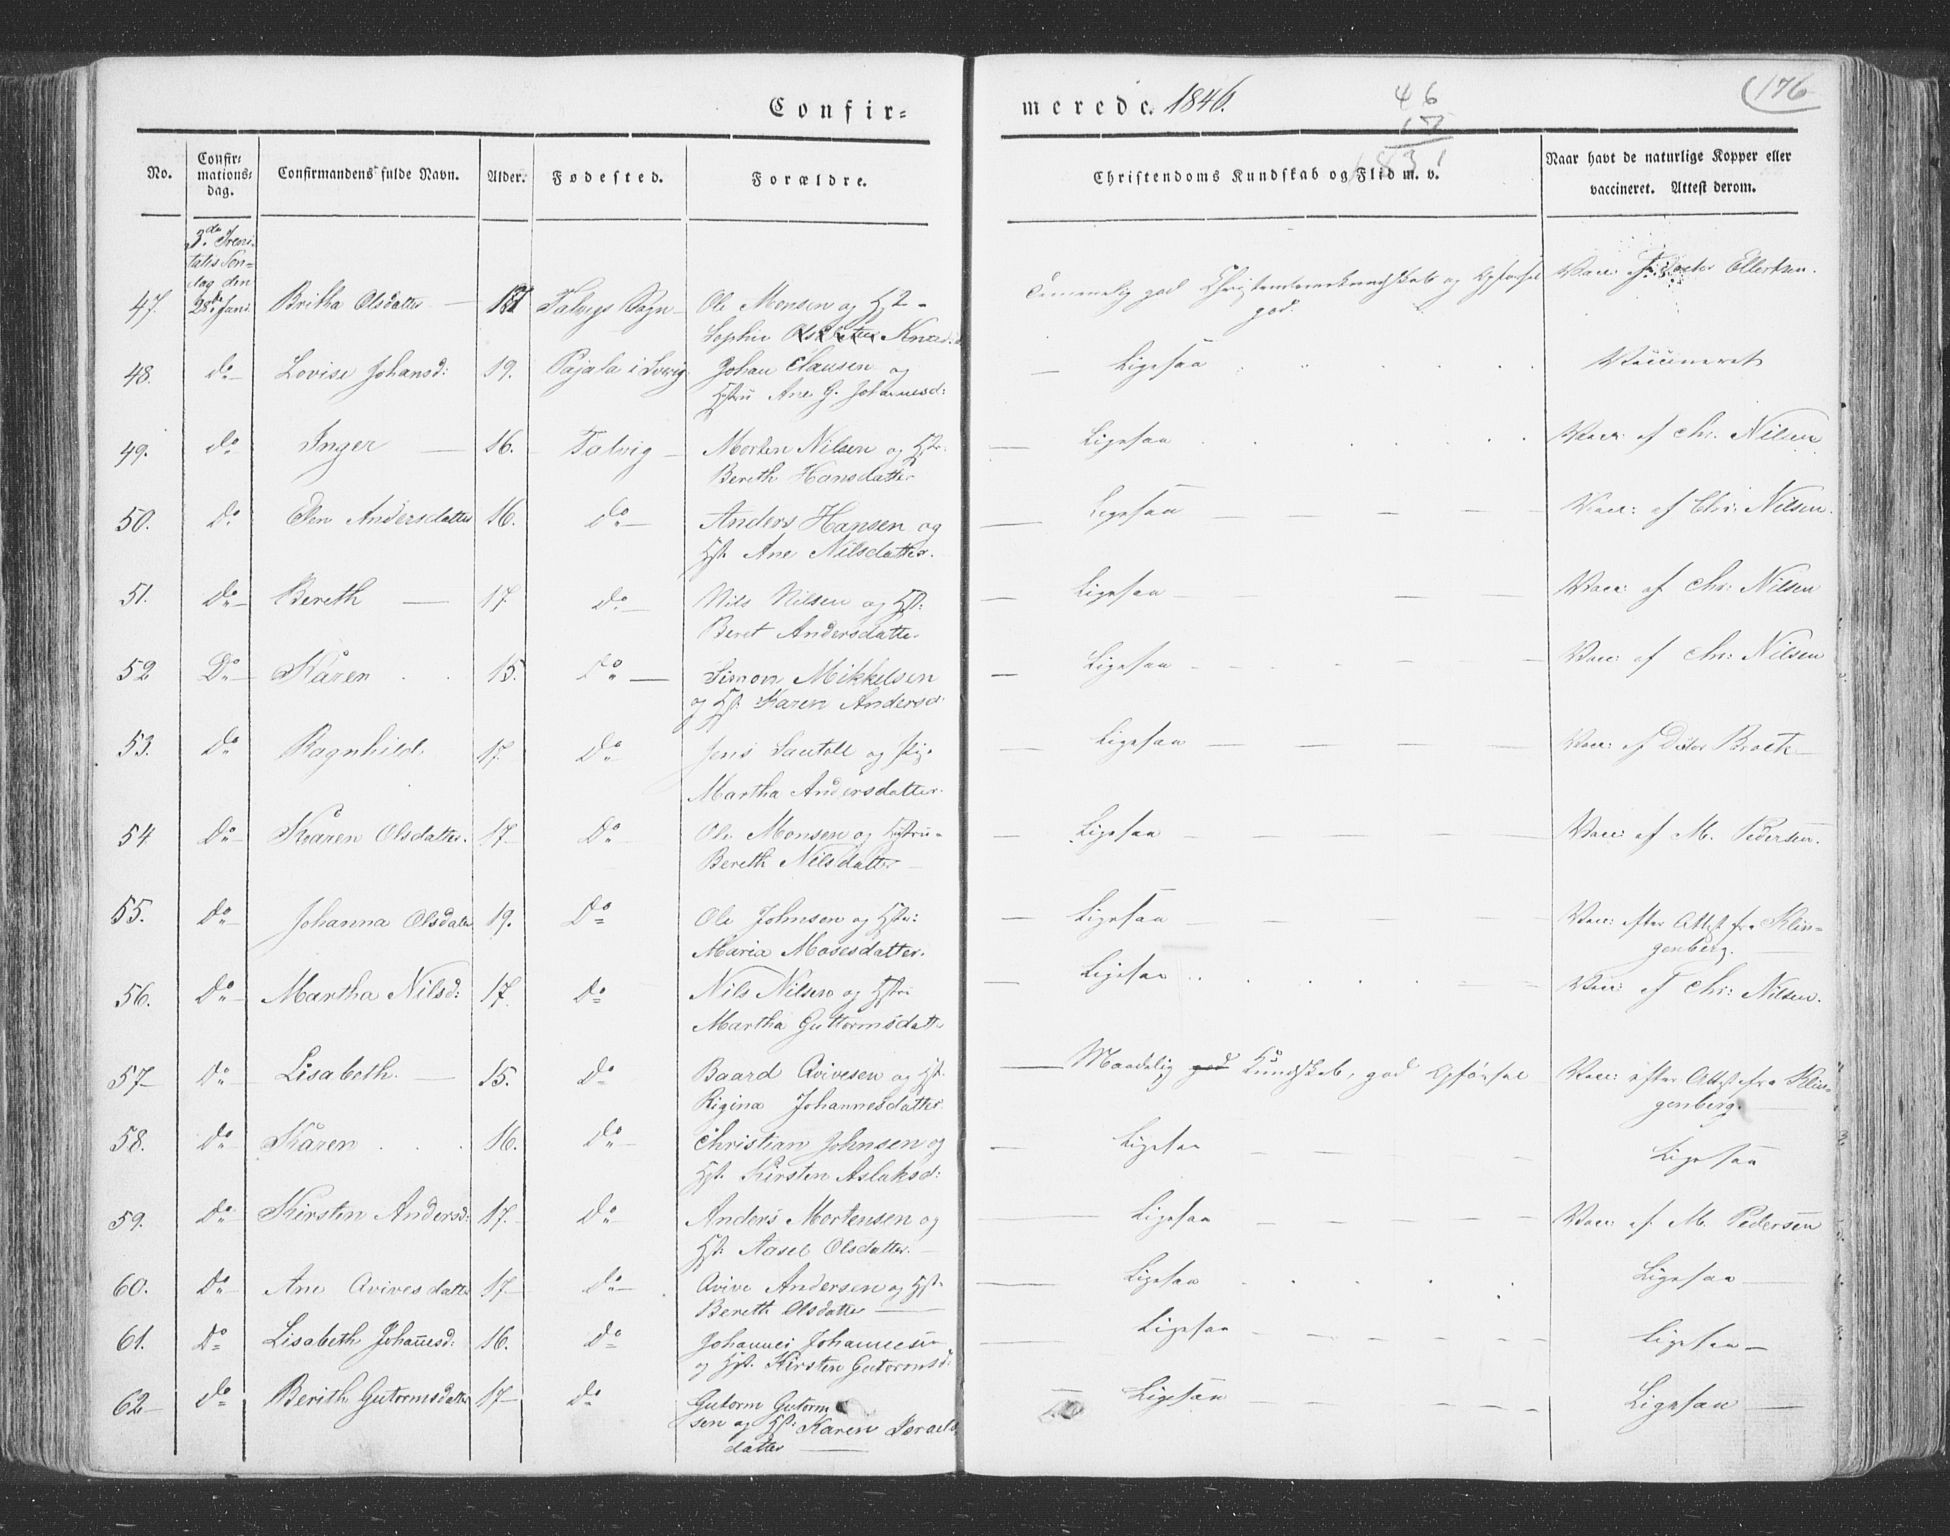 Confir=
merede. 1846.
46
15
1831
176
No.
Confir=
mations=
dag.
Confirmandens fulde Navn.
Alder.
Fødested.
Forældre.
Christendoms Kundskab og Flid m. v.
Naar havt de naturlige Kopper eller
vaccineret. Attest derom.
3de Treni-
tatis Søn=
dag den
28de Juni
47. Britha Olsdatter — Talvigs Sogn — Ole Monsen og
Sophie Olsdatter
god Christendomskundskab og Opførsel
god.
Vacc: af Doctor Ellertsen.
48. do — Lovise Johansd: 19. Pajala i Sverig Johan Clausen og
Hstru Ane G. Johannesd:
— Ligesaa
Vaccineret
49. do Inger — 16. Talvig — Morten Nilsen og Hstr.
Bereth Hansdatter
— Ligesaa
Vacc: af Chr. Nilsen
50. Do Elen Andersdatter 16. Do — Anders Hansen og
Hst. Ane Nilsdatter.
— Ligesaa — — — —
Vacc: af Chr: Nilsen.
51. Do — Bereth — 17. Do — Nils Nilsen og Hst:
Beret Andersdatter
— Ligesaa — — — —
Vacc: af Chr: Nilsen
52 Do — Karen . . 15. Do — Simon Mikkelsen
og Hst. Karen Andersd.
— Ligesaa — — — —
Vacc: af Chr: Nilsen
53. Do Ragnhild. 17. Do Jens og Pig.
Martha Andersdatter.
— Ligesaa — — — —
Vacc: af Doctor —
54 Do — Karen Olsdatter. 17. Do — Ole Monsen og Hstru-
Bereth Nilsdatter —
— Ligesaa — — — —
Vacc: af M. Pedersen.
55. Do — Johanna Olsdatter 19. Do Ole Johnsen og Hstr:
Maria Mosesdatter.
— Ligesaa — — — —
Vacc: efter Attest fra Klin-
genberg. —
56. Do — Martha Nilsd: 17. Do Nils Nilsen og Hstr:
Martha Guttormsdatter
— Ligesaa
Vacc: af Chr: Nilsen.
57 — Do — Lisabeth. — 15. Do Baard Avivesen og Hst.
Rigina Johannesdatter
— Maadelig god Kundskab, god Opførsel
Vacc: efter Attest fra Klin-
genberg. —
58. Do — Karen . . . 16. Do — Christian Johnsen og
Hst. Kirsten Aslaksd:
— Ligesaa — — — —
Ligesaa
59. Do — Kirsten Andersd: 17. Do — Anders Mortensen og
Hst. Aasel Olsdatter. —
— Ligesaa — — — —
Vacc: af M. Pedersen
60. Do — Ane Avivesdatter 17 — do — Avive Andersen og Hst.
Bereth Olsdatter —
— Ligesaa
Ligesaa —
61. Do Lisabeth Johanesd: 16. Do Johannes Johannesen
og Hst. Kirsten Gutormsd:
— Ligesaa
Ligesaa —
62 — do — Berith Gutormsdatter 17 — do Gutorm Gutorm
sen og Hst: Karen Israels
datter —
— Ligesaa — — — —
Ligesaa —